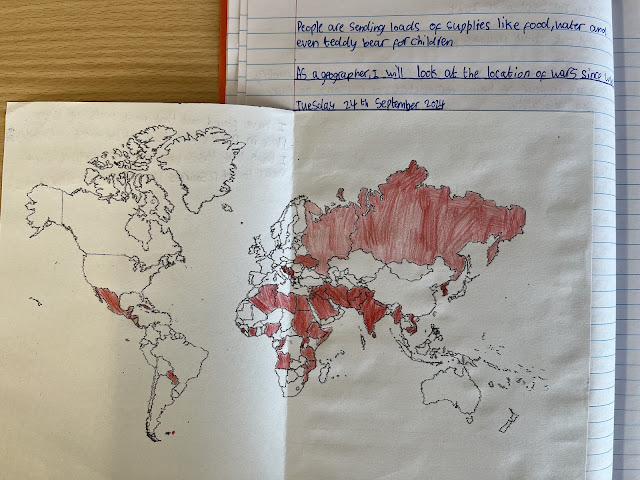 People are sending loads of supplies like food, water and
even teddy bear for children
As a geographer, I will look at the location of wars since
Tuesday 24th September 2024